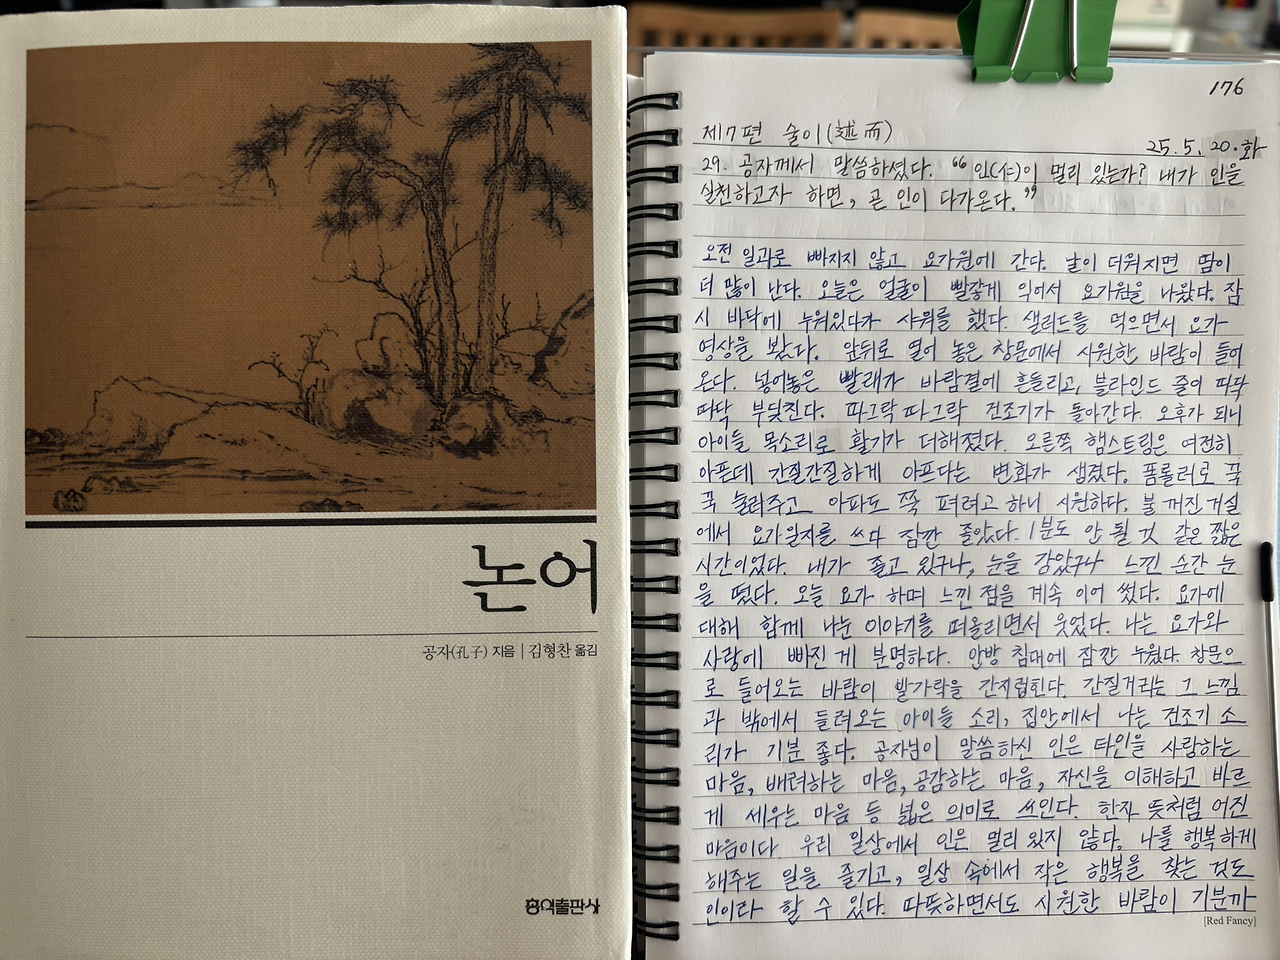 논어
공자(孔子) 지음 | 김형찬 옮김
홍익출판사
176
제7편 술이(述而)
25. 5. 20. 화
29. 공자께서 말씀하셨다. "인(仁)이 멀리 있는가? 내가 인을
실천하고자 하면, 곧 인이 다가온다."
오전 일과로 빠지지 않고 요가원에 간다. 날이 더워지면 땀이
더 많이 난다. 오늘은 얼굴이 빨갛게 익어서 요가원을 나왔다. 잠
시 바닥에 누워있다가 샤워를 했다. 샐러드를 먹으면서 요가
영상을 봤다. 앞뒤로 열어 놓은 창문에서 시원한 바람이 들어
온다. 널어놓은 빨래가 바람결에 흔들리고, 블라인드 줄이 따닥
따닥 부딪친다. 따그락 따그락 건조기가 돌아간다. 오후가 되니
아이들 목소리로 활기가 더해졌다. 오른쪽 햄스트링은 여전히
아픈데 간질간질하게 아프다는 변화가 생겼다. 폼롤러로 꾹
꾹 눌러주고 아파도 쭉 펴려고 하니 시원하다. 불 꺼진 거실
에서 요가일지를 쓰다 잠깐 졸았다. 1분도 안 될 것 같은 짧은
시간이었다. 내가 졸고 있구나, 눈을 감았구나 느낀 순간 눈
을 떴다. 오늘 요가 하며 느낀 점을 계속 이어 썼다. 요가에
대해 함께 나눈 이야기를 떠올리면서 웃었다. 나는 요가와
사랑에 빠진 게 분명하다. 안방 침대에 잠깐 누웠다. 창문으
로 들어오는 바람이 발가락을 간지럽힌다. 간질거리는 그 느낌
과 밖에서 들려오는 아이들 소리, 집안에서 나는 건조기 소
리가 기분 좋다. 공자님이 말씀하신 인은 타인을 사랑하는
마음, 배려하는 마음, 공감하는 마음, 자신을 이해하고 바르
게 세우는 마음 등 넓은 의미로 쓰인다. 한자 뜻처럼 어진
마음이다. 우리 일상에서 인은 멀리 있지 않다. 나를 행복하게
해주는 일을 즐기고, 일상 속에서 작은 행복을 찾는 것도
인이라 할 수 있다. 따뜻하면서도 시원한 바람이 기분까
[Red Fancy]